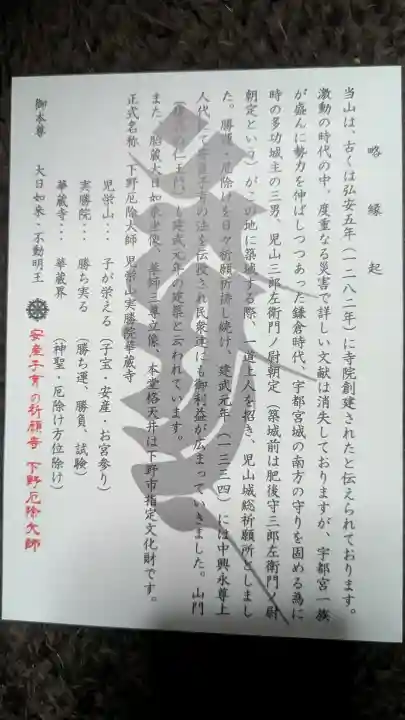 略縁起
当山は、古くは弘安五年(一二八二年)に寺院創建されたと伝えられております。
激動の時代の中、度重なる災害で詳しい文献は消失しておりますが、宇都宮一族
が盛んに勢力を伸ばしつつあった鎌倉時代、宇都宮城の南方の守りを固める為に
時の多功城主の三男、児山三郎左衛門ノ尉朝定(築城前は肥後守三郎左衛門ノ尉
朝定という)がこの地に築城する際、一道上人を招き、児山城総祈願所としまし
た。勝願・厄除けを日々祈願祈祷し続け、建武元年(一三三四)には中興永尊上
人代にて安産子育の法を伝授され民衆達にも御利益が広まっていきました。山門
仁王門)も建武元年の建築と云われています。
また、胎蔵大日如来坐像、薬師三尊立像、本堂格天井は下野市指定文化財です。
正式名称 下野厄除大師 児栄山実勝院華蔵寺
児栄山・・・ 子が栄える (子宝・安産・お宮参り)
実勝院・・・ 勝ち実る (勝ち運、勝負、試験)
華蔵寺・・・ 華蔵界 (神聖・厄除け方位除け)
御本尊 大日如来・不動明王
安産子育の祈願寺 下野厄除大師